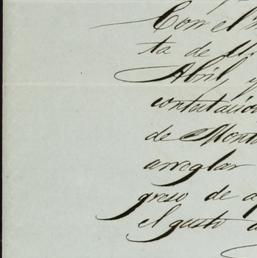 Con el
ta de
Abril, y
contestacion
de Mont
arreglar
greso de a
el gusto d